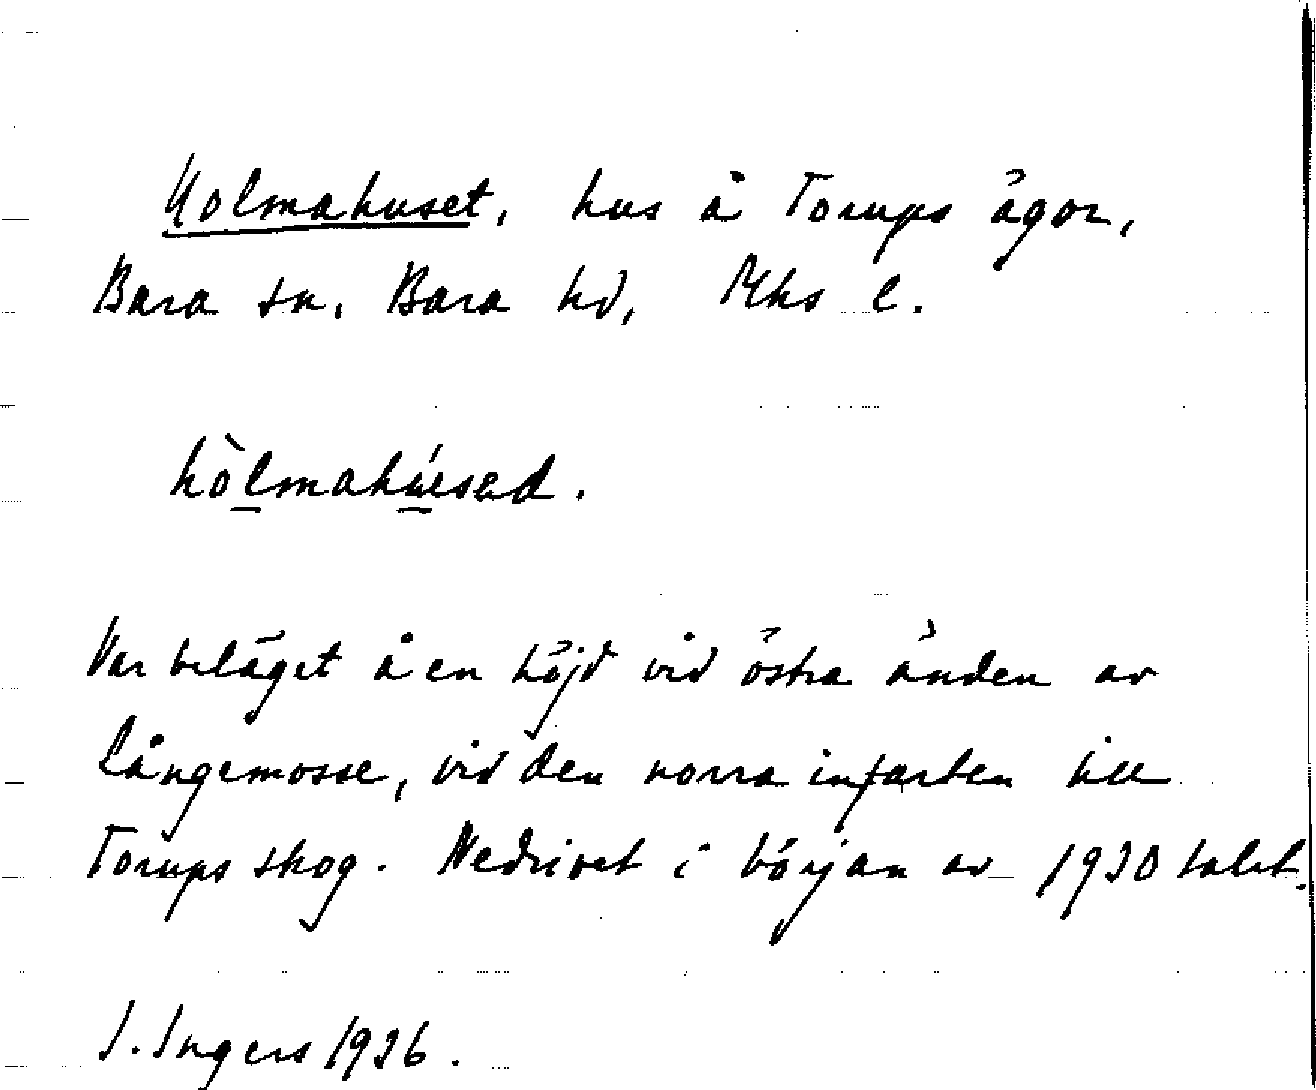 Holmahuset, hus å Torups ägor,
Bara sn. Bara hd, Mhs l.
hòlmahúsad.
Var beläget å en höjd vid östra änden av
Långemosse, vid den norra infarten till
Torups skog. Nedrivet i början av 1930 talet.
I. Ingers 1936.